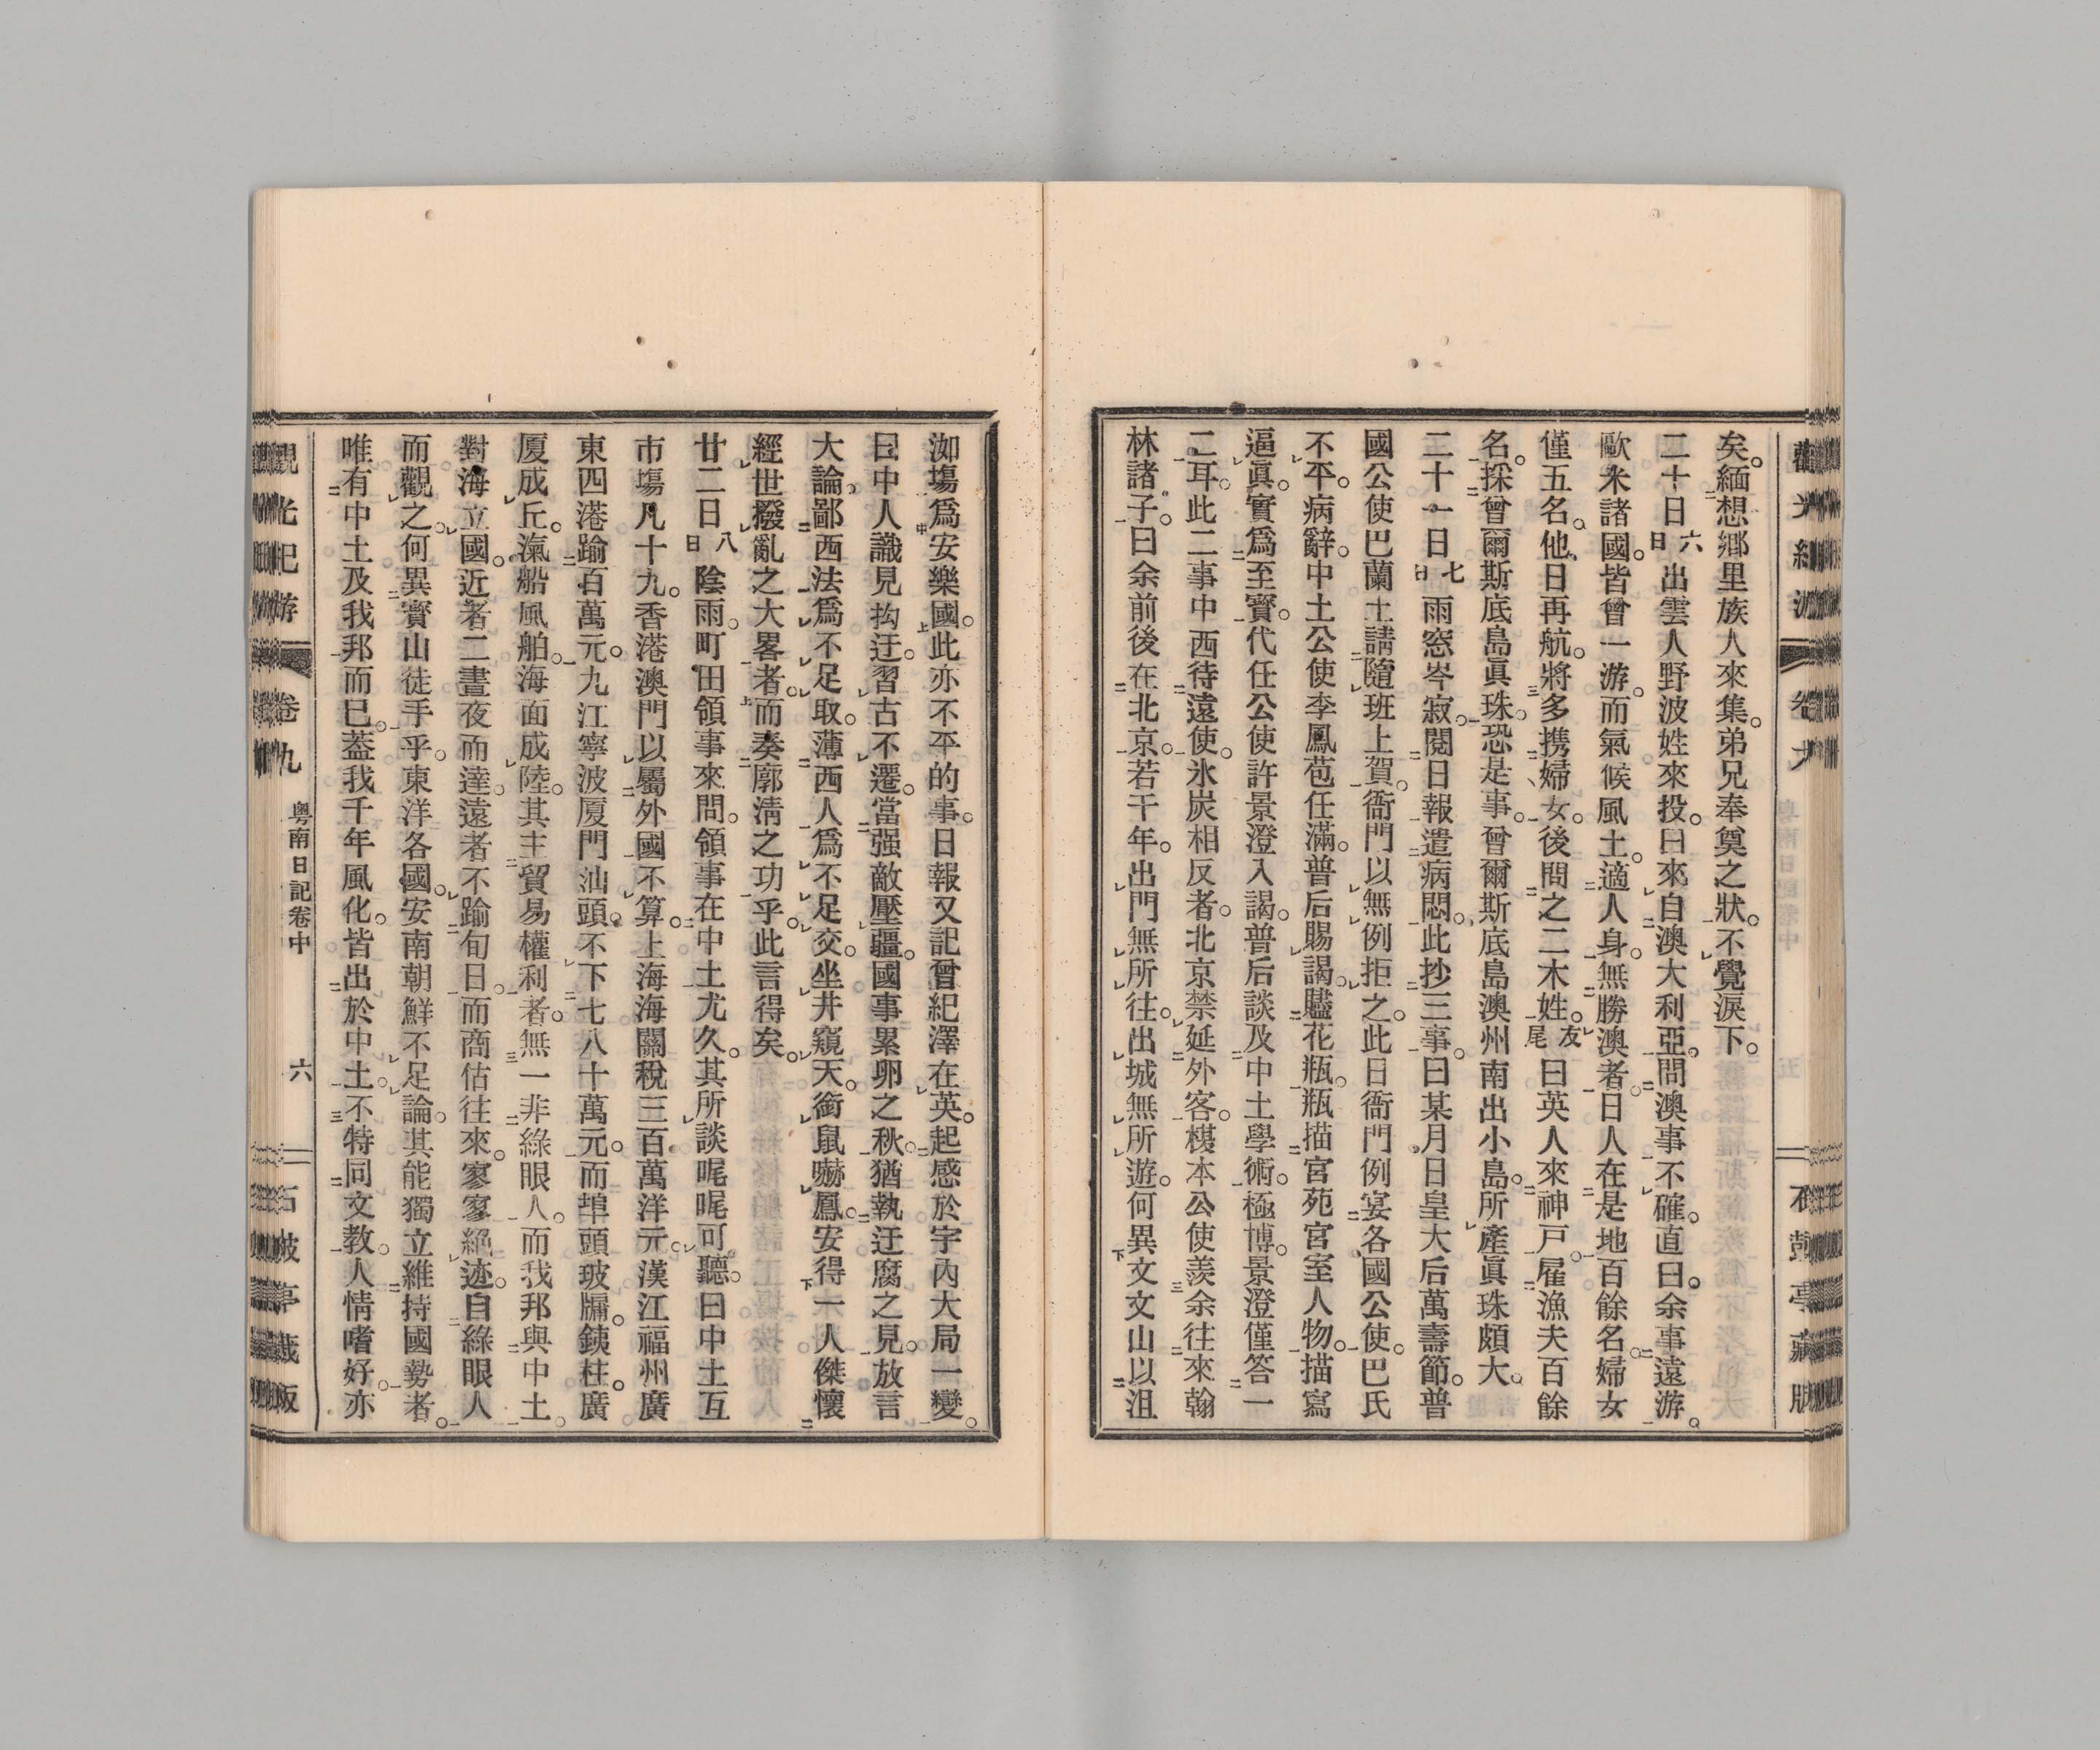 矣。緬想鄉里族人來集。弟兄奉奠之狀。不覺淚下。
二十日六日出雲人野波姓來投。曰來自澳大利亞。問澳事不確。直曰。余事遠游。
歐米諸國。皆曾一游。而氣候風土。適人身。無勝澳者。日人在是地百餘名。婦女
僅五名。他日再航。將多携婦女。後問之二木姓。友尾曰英人來神戶。雇漁夫百餘
名。採曾爾斯底島眞珠。恐是事。曾爾斯底島澳州南出小島。所產眞珠頗大。
二十一日七日雨窓岑寂。閱日報遣病悶。此抄三事。曰某月日皇大后萬壽節。普
國公使巴蘭土請隨班上賀。衙門以無例拒之。此日衙門例宴各國公使。巴氏
不平。病辭。中土公使李鳳苞任滿。普后賜謁。贐花瓶。瓶描宮苑宮室人物。描寫
逼眞。實爲至寳。代任公使許景澄入謁。普后談及中土學術。極博。景澄僅答一
二耳。此二事中西待遠使。氷炭相反者。北京禁延外客。榎本公使羨余往來翰
林諸子。曰余前後在北京。若干年。出門無所往。出城無所遊。何異文文山以沮
洳場爲安樂國。此亦不平的事。日報又記曾紀澤在英。起感於宇內大局一變。
曰中人識見拘迂。習古不遷。當强敵壓疆。國事累卵之秋。猶執迂腐之見。放言
大論。鄙西法爲不足取。薄西人爲不足交。坐井窺天。銜鼠嚇鳳。安得一人傑懷
經世撥亂之大畧者。而奏廓淸之功乎。此言得矣。
廿二日八日陰雨。町田領事來問。領事在中土尤久。其所談喔喔可聽。曰中土互
市塲凡十九。香港澳門以屬外國不算。上海海關稅三百萬洋元。漢江福州廣
東四港踰百萬元。九江寧波厦門汕頭。不下七八十萬元。而埠頭玻牖。銕柱。廣
厦成丘。滊船風舶。海面成陸。其主貿易權利者。無一非綠眼人。而我邦與中土。
對海立國。近者二晝夜而達。遠者不踰旬日。而商估往來。寥寥絕迹。自綠眼人
而觀之。何異寶山徒手乎。東洋各國。安南朝鮮不足論。其能獨立維持國勢者。
唯有中土及我邦而已。葢我千年風化。皆出於中土。不特同文教。人情嗜好。亦
觀光紀游 卷九 粤南日記卷中 六 石鼓亭藏版